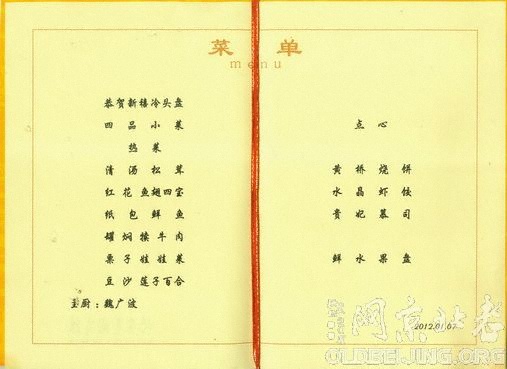 菜 单
menu
恭贺新禧冷头盘
四品小菜
热菜
清汤松茸
红花鱼翅四宝
纸包鲜鱼
罐焖犊牛肉
栗子娃娃菜
豆沙莲子百合
主厨：魏广波
点心
黄桥烧饼
水晶虾饺
贵妃慕司
鲜水果盘
2012.01.07
老北京网
OLDBEIJING.ORG